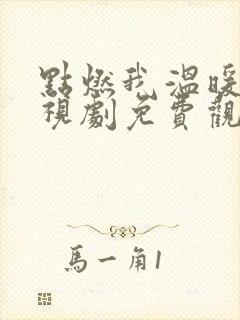 點燃我溫暖
視劇免費觀
馬一角1